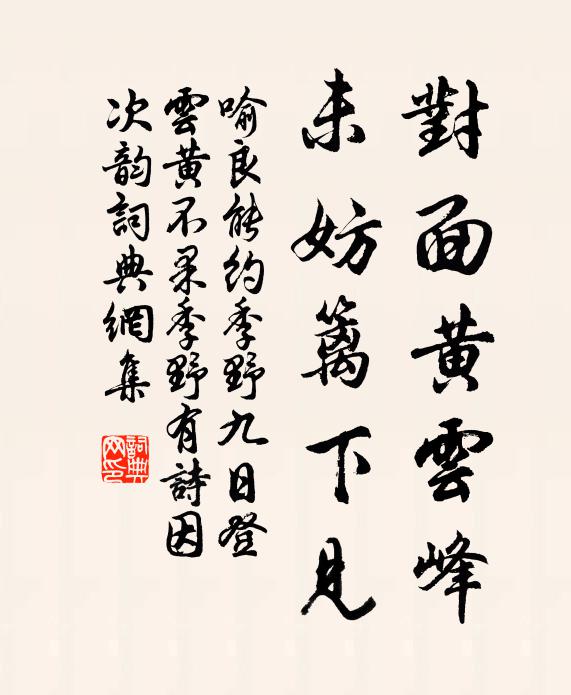 對面黃雲峰
未妨籬下見
喻良能約季野九日登
雲黃不果季野有詩因
次韵詞典網集
詞典網印